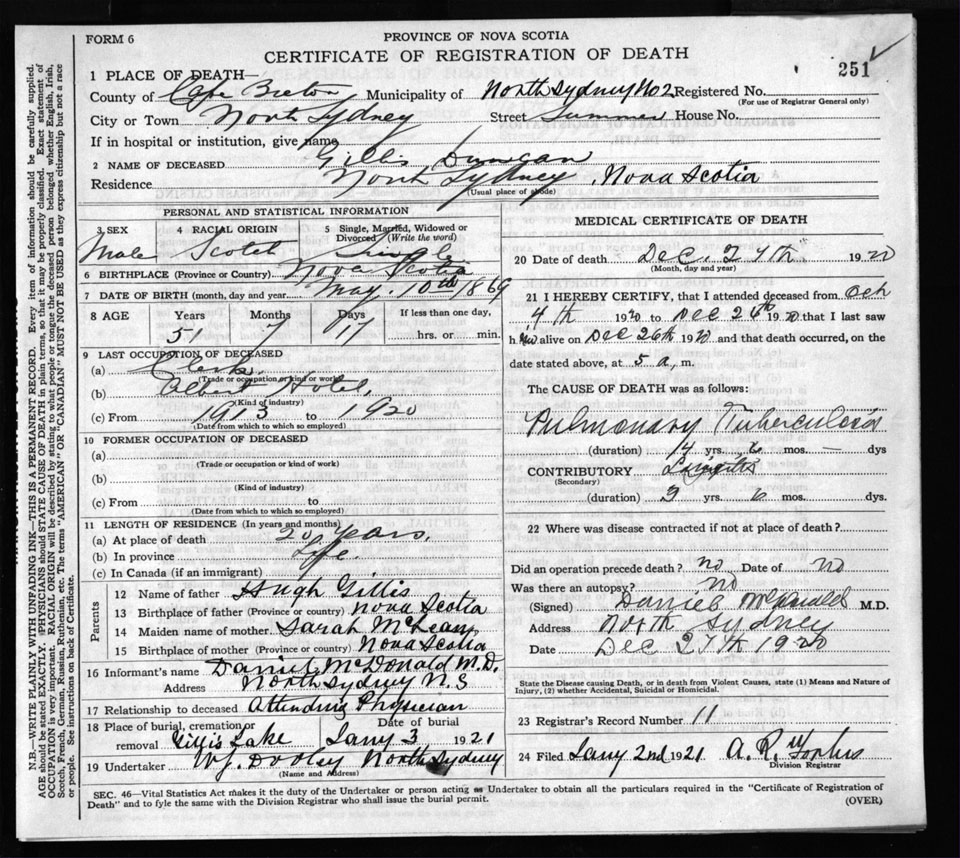 FORM 6
PROVINCE OF NOVA SCOTIA
CERTIFICATE OF REGISTRATION OF DEATH
251
1 PLACE OF DEATH—
County of Cape Breton Municipality of North Sydney No 2 Registered No.
(For use of Registrar General only)
City or Town North Sydney Street Summer House No.
If in hospital or institution, give name
2 NAME OF DECEASED Gillis, Duncan
Residence North Sydney, Nova Scotia
(Usual place of abode)
PERSONAL AND STATISTICAL INFORMATION
3 SEX 4 RACIAL ORIGIN 5 Single, Married, Widowed or Divorced (Write the word)
Male Scotch Single
6 BIRTHPLACE (Province or Country) Nova Scotia
7 DATE OF BIRTH (month, day and year) May. 10th 1869
8 AGE Years Months Days If less than one day,
51 7 17 hrs. or min.
9 LAST OCCUPATION OF DECEASED
(a) Clerk
(Trade or occupation or kind of work)
(b) Albert Hotel,
(Kind of industry)
(c) From 1913 to 1920
(Date from which to which so employed)
10 FORMER OCCUPATION OF DECEASED
(a)
(Trade or occupation or kind of work)
(b)
(Kind of industry)
(c) From to
(Date from which to which so employed)
11 LENGTH OF RESIDENCE (In years and months)
(a) At place of death 20 years.
(b) In province Life.
(c) In Canada (if an immigrant)
Parents
12 Name of father Hugh Gillis
13 Birthplace of father (Province or country) Nova Scotia
14 Maiden name of mother Sarah McLean
15 Birthplace of mother (Province or country) Nova Scotia
16 Informant's name Daniel McDonald M.D.
Address North Sydney N.S
17 Relationship to deceased Attending Physician
18 Place of burial, cremation or removal Gillis Lake Date of burial Jany 3 1921
19 Undertaker W.J. Dooley North Sydney
(Name and Address)
MEDICAL CERTIFICATE OF DEATH
20 Date of death Dec. 27th 1920
(Month, day and year)
21 I HEREBY CERTIFY, that I attended deceased from Oct
4th 1920 to Dec 26th 1920 that I last saw
him alive on Dec 26th 1920 and that death occurred, on the
date stated above, at 5 a, m.
The CAUSE OF DEATH was as follows:
Pulmonary Tuberculosis
(duration) yrs. 2 mos. — dys
CONTRIBUTORY
(Secondary)
(duration) yrs. 6 mos. dys.
22 Where was disease contracted if not at place of death?
Did an operation precede death? no Date of no
Was there an autopsy? no
(Signed) Daniel McDonald M.D.
Address North Sydney
Date Dec 27th 1920
State the Disease causing Death, or in death from Violent Causes, state (1) Means and Nature of Injury, (2) whether Accidental, Suicidal or Homicidal.
23 Registrar's Record Number 11
24 Filed Jany 2nd 1921 A. R. Forbes
Division Registrar
SEC. 46—Vital Statistics Act makes it the duty of the Undertaker or person acting as Undertaker to obtain all the particulars required in the "Certificate of Registration of
Death" and to fyle the same with the Division Registrar who shall issue the burial permit.
(OVER)
N.B.—WRITE PLAINLY WITH UNFADING INK—THIS IS A PERMANENT RECORD. Every item of information should be carefully supplied.
AGE should be stated EXACTLY. PHYSICIANS should STATE CAUSE OF DEATH in plain terms, so that it may be properly classified. Exact statement of
OCCUPATION is very important. RACIAL ORIGIN will be described by stating to what people or tongue the deceased person belonged whether English, Irish,
Scotch, French, German, Russian, Ruthenian, etc. The terms "AMERICAN" or "CANADIAN" MUST NOT BE USED as they express citizenship but not a race
or people. See instructions on back of Certificate.